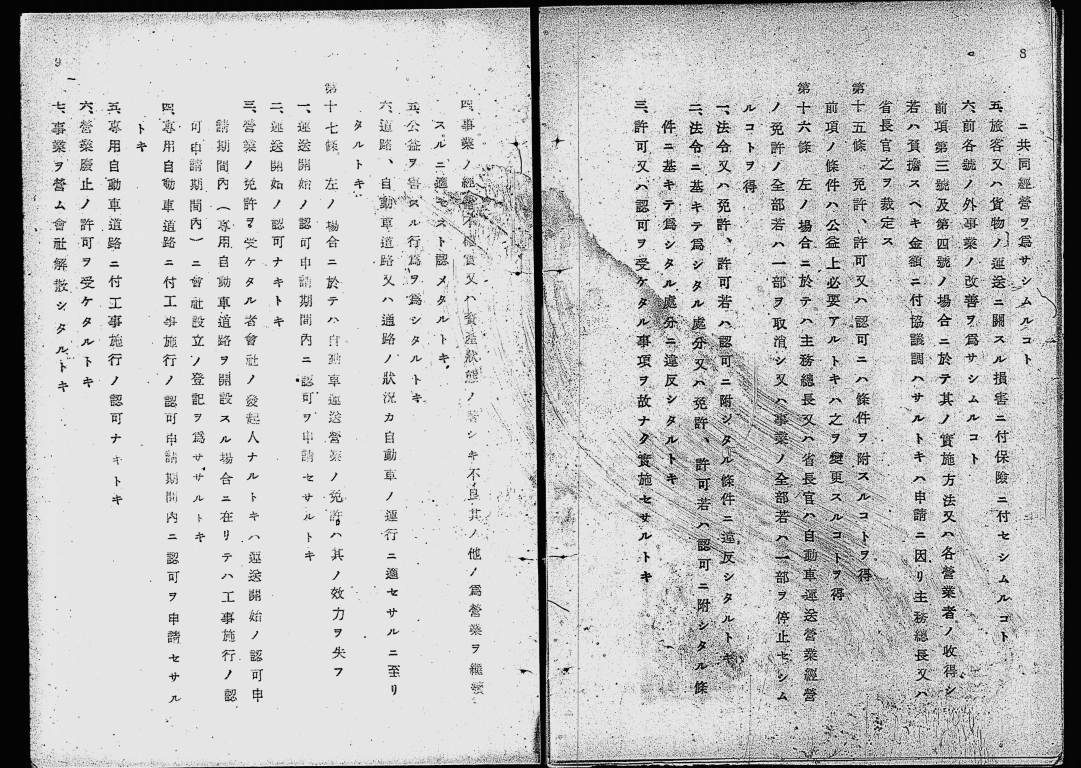 8
ニ共同經營ヲ爲サシムルコト
五、旅客又ハ貨物ノ運送ニ關スル損害ニ付保險ニ付セシムルコト
六、前各號ノ外事業ノ改善ヲ爲サシムルコト
前項第三號及第四號ノ場合ニ於テ其ノ實施方法又ハ各營業者ノ收得シ
若ハ負擔スヘキ金額ニ付協議調ハサルトキハ申請ニ因リ主務總長又ハ
省長官之ヲ裁定ス
第十五條 免許、許可又ハ認可ニハ條件ヲ附スルコトヲ得
前項ノ條件ハ公益上必要アルトキハ之ヲ變更スルコトヲ得
第十六條 左ノ場合ニ於テハ主務總長又ハ省長官ハ自動車運送營業經營
ノ免許ノ全部若ハ一部ヲ取消シ又ハ事業ノ全部若ハ一部ヲ停止セシム
ルコトヲ得
一、法令又ハ免許、許可若ハ認可ニ附シタル條件ニ違反シタルトキ
二、法令ニ基キテ爲シタル處分又ハ免許、許可若ハ認可ニ附シタル條
件ニ基キテ爲シタル處分ニ違反シタルトキ
三、許可又ハ認可ヲ受ケタル事項ヲ故ナク實施セサルトキ
9
四、事業ノ經營不確實又ハ資產狀態ノ著シキ不良其ノ他ノ爲營業ヲ繼續
スルニ適セスト認メタルトキ
五、公益ヲ害スル行爲ヲ爲シタルトキ
六、道路、自動車道路又ハ通路ノ狀況カ自動車ノ運行ニ適セサルニ至リ
タルトキ
第十七條 左ノ場合ニ於テハ自動車運送營業ノ免許ハ其ノ效力ヲ失フ
一、運送開始ノ認可申請期間內ニ認可ヲ申請セサルトキ
二、運送開始ノ認可ナキトキ
三、營業ノ免許ヲ受ケタル者會社ノ發起人ナルトキハ運送開始ノ認可申
請期間內（專用自動車道路ヲ開設スル場合ニ在リテハ工事施行ノ認
可申請期間內）ニ會社設立ノ登記ヲ爲ササルトキ
四、專用自動車道路ニ付工事施行ノ認可申請期間內ニ認可ヲ申請セサル
トキ
五、專用自動車道路ニ付工事施行ノ認可ナキトキ
六、營業廢止ノ許可ヲ受ケタルトキ
七、事業ヲ營ム會社解散シタルトキ